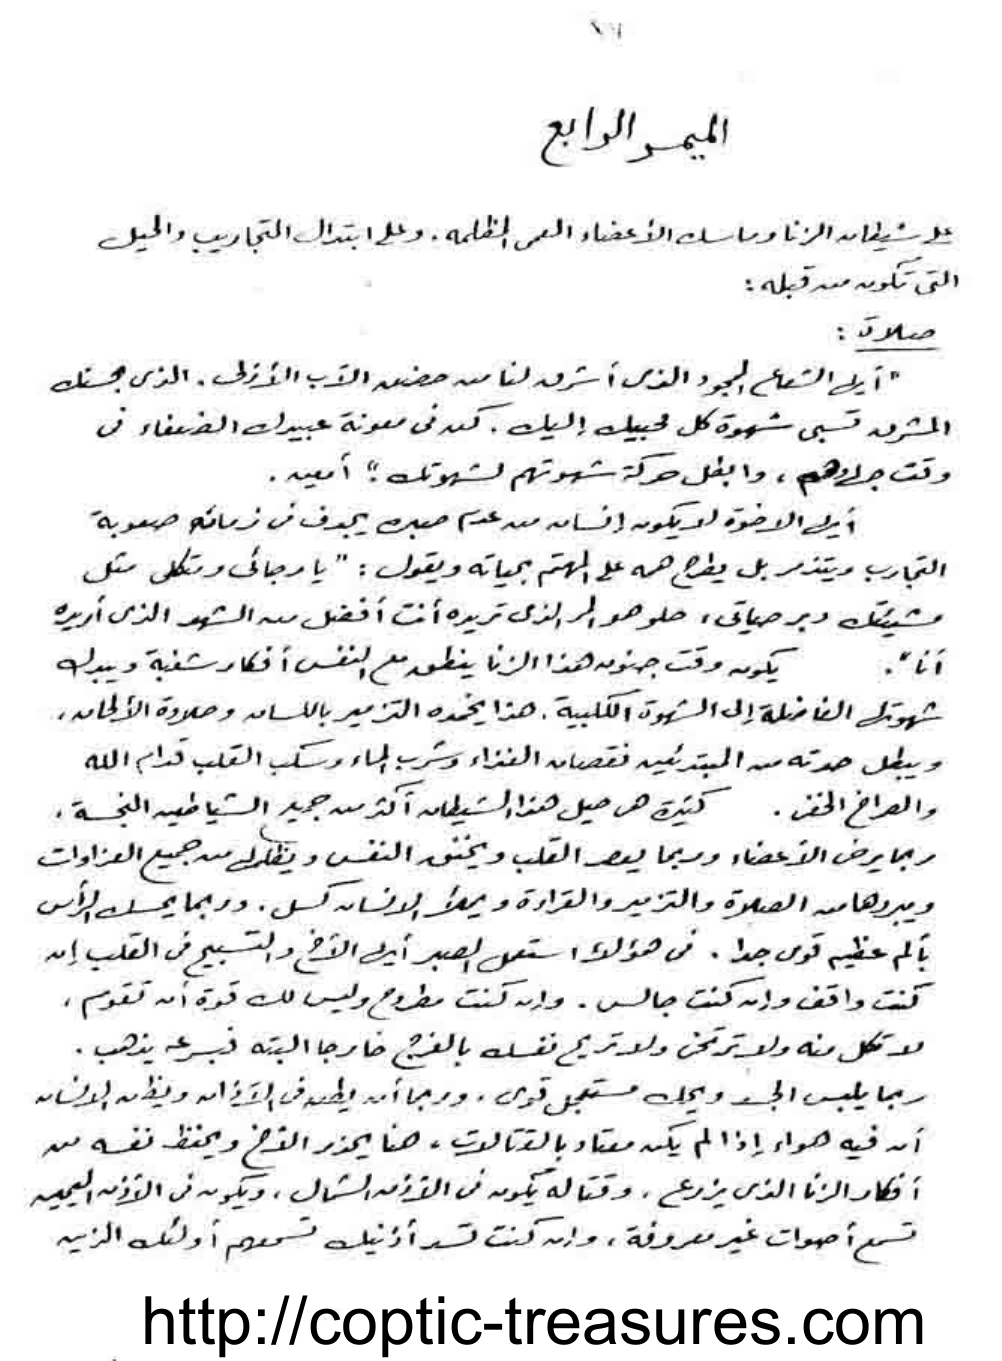 الميمر الرابع
على شيطان الزنا وماسك الأعضاء العمى المظلمه. وعلى ابتدال التجاريب والحيل
التى تكون من قبله :
صلاة :
" أيها الشعاع المجود الذى أشرق لنا من حضن الآب الأزلى. الذى بحسنك
المشرق تسبى شهوة كل محبيك إليك. كن فى معونة عبيدك الضعفاء فى
وقت جهادهم ، وابطل حركة شهوتهم لشهوتك " أمين .
أيها الاخوة لا يكون إنسان من عدم صبره يجدف فى زمانه صعوبة
التجارب ويتذمر بل يطرح همه على المهتم بحياته ويقول : " يا رجائى ومتكلى مثل
مشيئتك دبر حياتى ، حلو هو المر الذى تريده أنت أفضل من الشهد الذى أريده
أنا " . يكون وقت جنون هذا الزنا ينطق مع النفس أفكار شغبة ويبدل
شهوتها الفاضلة إلى الشهوة الكلبية . هذا يخمده التزمير باللسان وحلاوة الألحان ،
ويبطل حدته من المبتدئين نقصان الغذاء وشرب الماء وسكب القلب قدام الله
والصراخ الخفى . كثيرة هى حيل هذا الشيطان أكثر من جميع الشياطين النجسة ،
ربما يرض الأعضاء وربما يعصر القلب ويخنق النفس ويظلمها من جميع العزاوات
ويبردها من الصلاة والتزمير والقراءة ويملأ الإنسان كسل . وربما يمسك الرأس
بألم عظيم قوى جدا . فى هؤلاء استعمل الصبر أيها الأخ والتسبيح فى القلب إن
كنت واقف وإن كنت جالس . وإن كنت مطروح وليس لك قوة أن تقوم ،
لا تكل منه ولا ترتخى ولا تريح نفسك بالفرج خارجا البته فبسرعه يذهب .
ربما يلبس الجسد ويحك مستعجل قوى . وربما أن يطن فى الآذان ويظن الإنسان
أن فيه هواء إذا لم يكن معتاد بالقتالات ، هنا يحذر الأخ ويحفظ نفسه من
أفكار الزنا الذى يزرع . وقتاله يكون فى الأذن الشمال ، ويكون فى الأذن اليمين
تسمع أصوات غير معروفة ، وإن كنت تسد أذنيك تسمعهم أولئك الذين
http://coptic-treasures.com